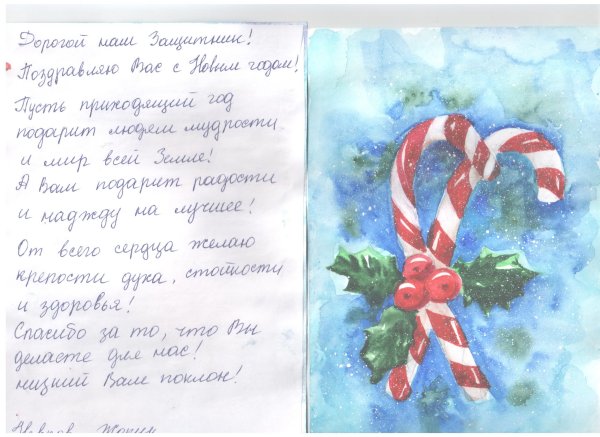 Дорогой наш Защитник!
Поздравляю Вас с Новым годом!
Пусть приходящий год
подарит людям мудрости
и мир всей Земле!
А Вам подарит радости
и наджду на лучшее!
От всего сердца желаю
крепости духа, стойкости
и здоровья!
Спасибо за то, что Вы
делаете для нас!
низкий Вам поклон!